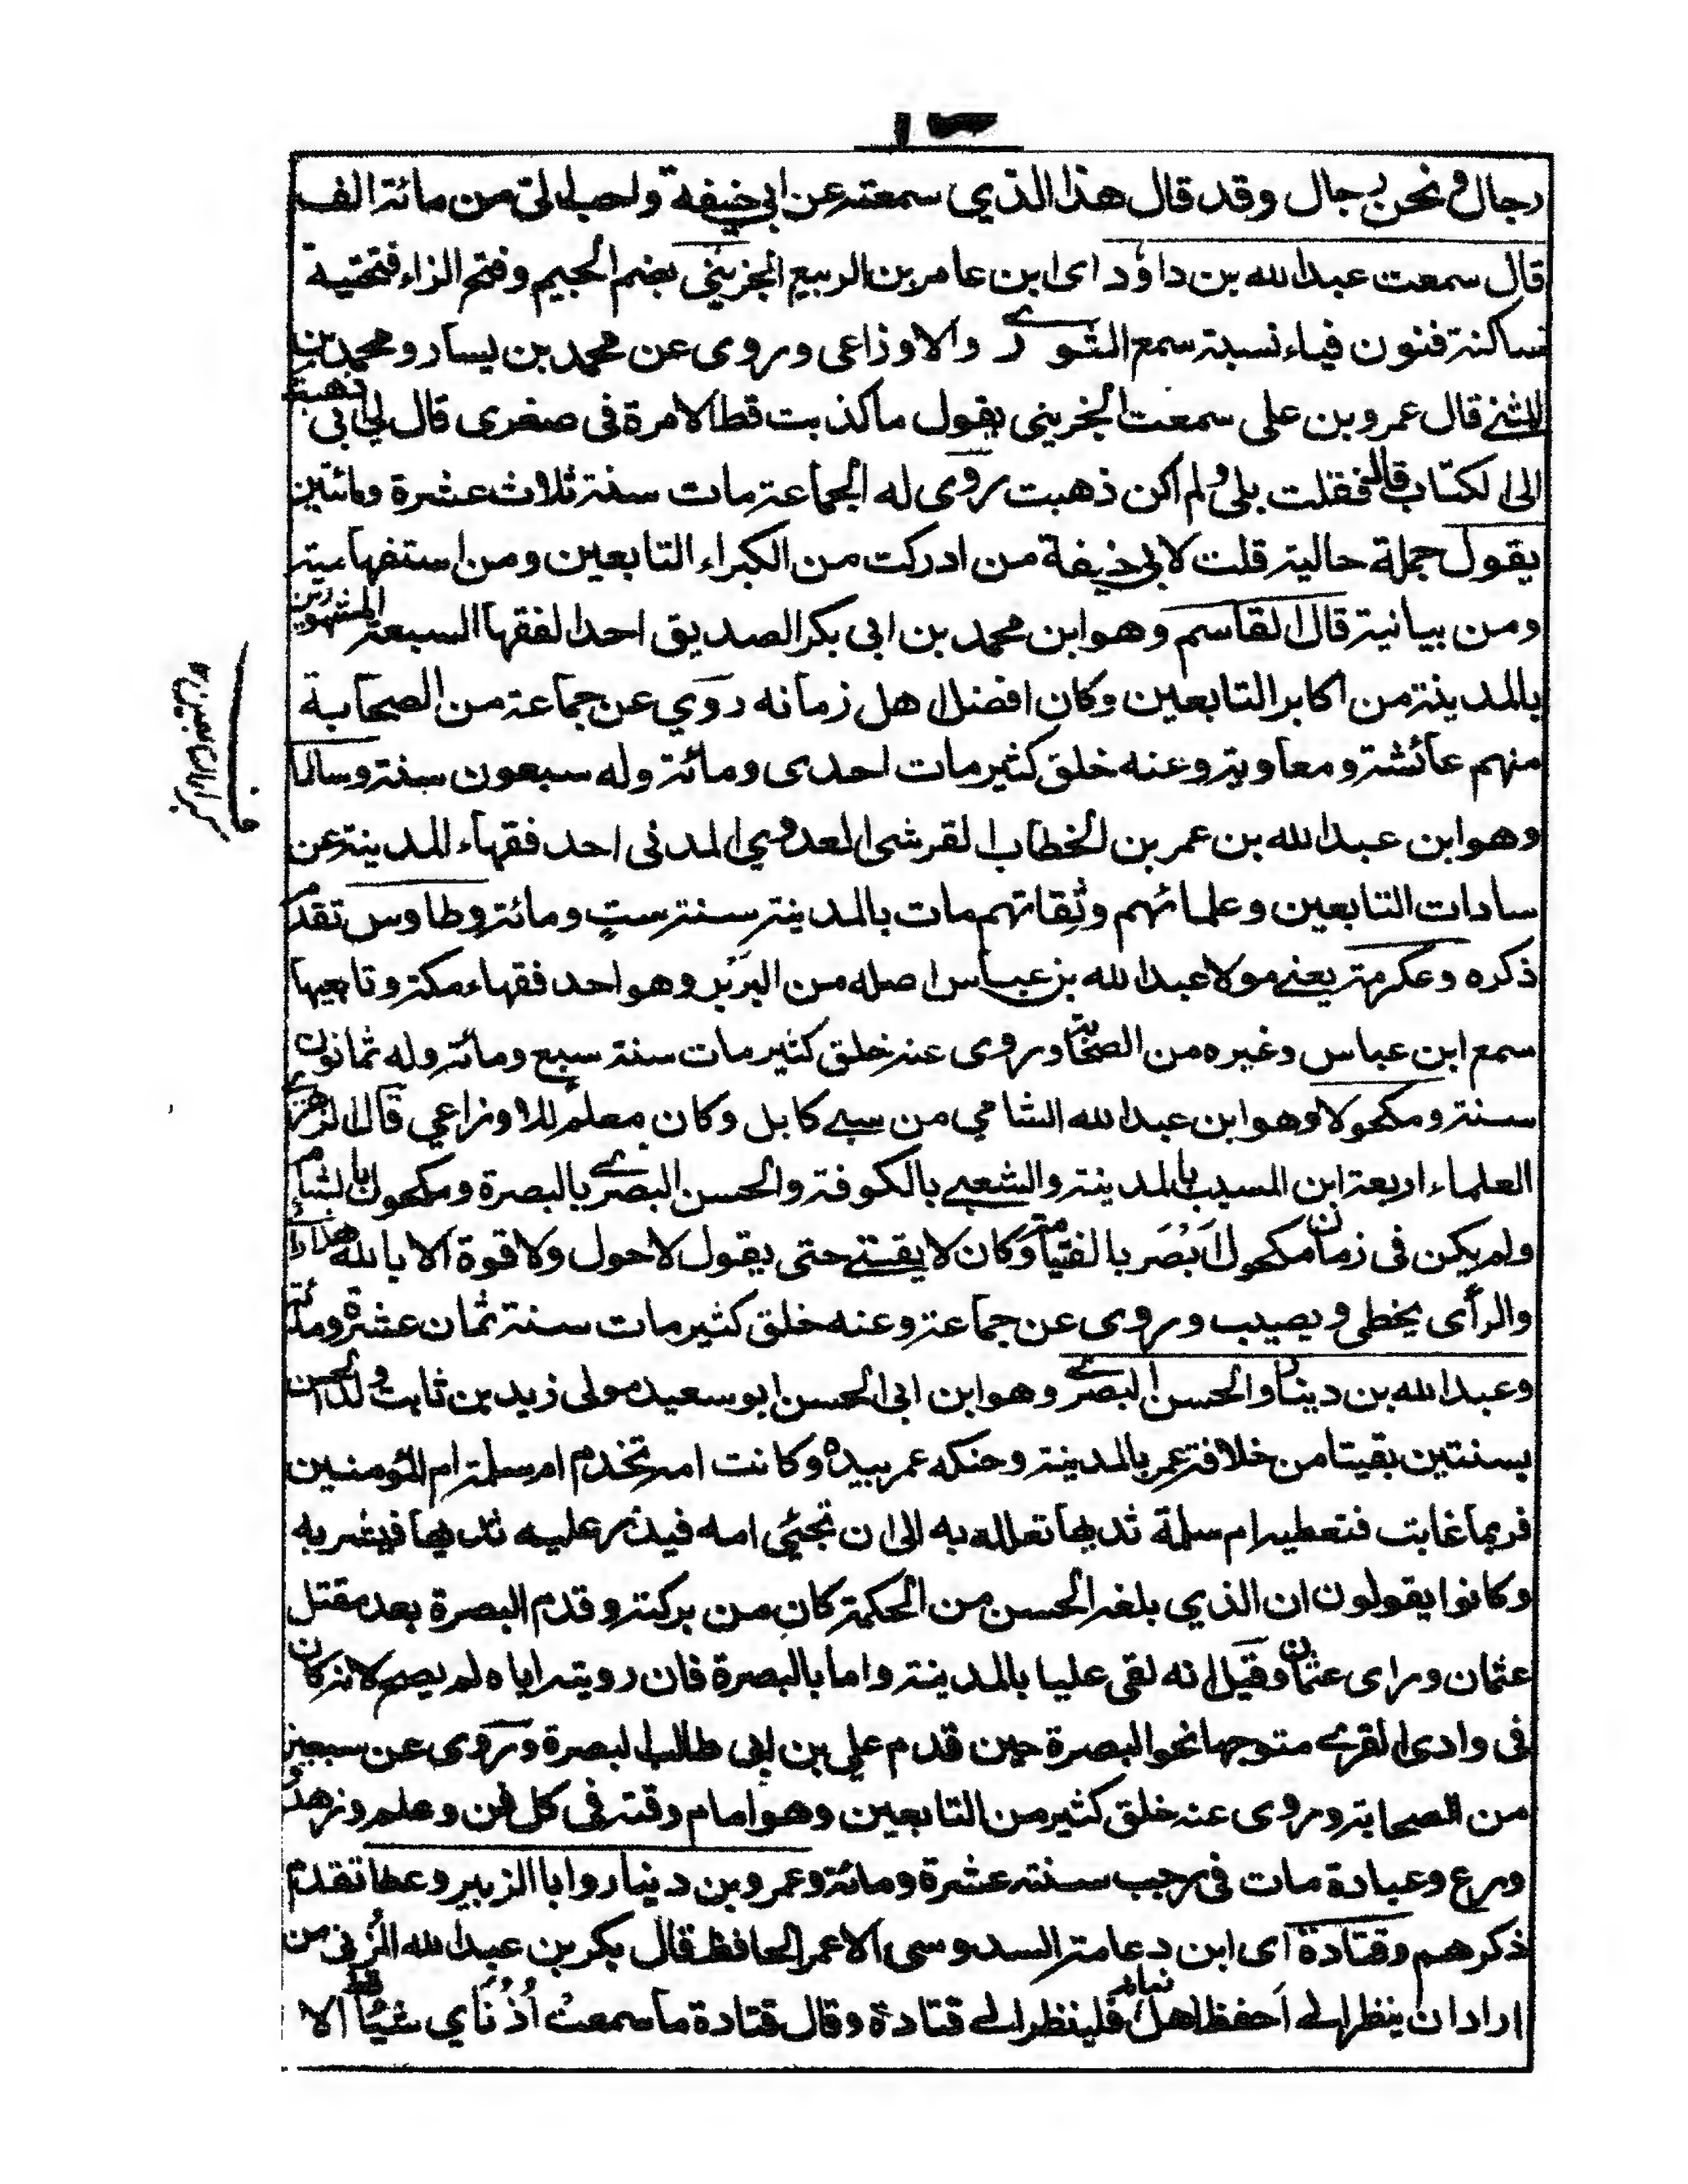 رجال ونحن رجال وقد قال هذا الذي سمعته عن ابي حنيفة واحب الى من مائة الف
قال سمعت عبد الله بن داؤد اى ابن عامر بن الربيع الجزيني بضم الجيم وفتح الزاء فتحتية
ساكنة فنون فياء نسبة سمع الثوري والاوزاعى وروى عن محمد بن يسار ومحمد بن
المثنى قال عمرو بن على سمعت الخرينى يقول ما كذبت قط الا مرة فى صغرى قال لى ابى ذهبت
الى الكتاب قال فقلت بلى ولم اكن ذهبت روى له الجماعة مات سنة ثلاث عشرة ومائتين
يقول جملة حالية قلت لابي حنيفة من ادركت من الكبراء التابعين ومن استفهامية
ومن بيانية قال القاسم وهو ابن محمد بن ابى بكر الصديق احد الفقها السبعة المشهورين
بالمدينة من اكابر التابعين وكان افضل اهل زمانه روي عن جماعة من الصحابة
منهم عائشة ومعاوية وعنه خلق كثير مات احدى ومائة وله سبعون سنة وسالما
وهو ابن عبد الله بن عمر بن الخطاب القرشى العدوي المدنى احد فقهاء المدينة عن
سادات التابعين وعلمائهم وثقاتهم مات بالمدينة سنة ست ومائة وطاوس تقدم
ذكره وعكرمة يعنى مولا عبد الله بن عباس اصله من البربر وهو احد فقهاء مكة وتابعيها
سمع ابن عباس وغيره من الصحابة وروى عنه خلق كثير مات سنة سبع ومائة وله ثمانون
سنة ومكحولا وهو ابن عبد الله الشامي من سبى كابل وكان معلم للاوزاعي قال الزهرى
العلماء اربعة ابن المسيب بالمدينة والشعبى بالكوفة والحسن البصرى بالبصرة ومكحول بالشام
ولم يكن فى زمان مكحول ابصر بالفتيا منه وكان لا يفتى حتى يقول لا حول ولا قوة الا بالله هذا راى
والرأى يخطى ويصيب وروى عن جماعة وعنه خلق كثير مات سنة ثمان عشرة ومائة
وعبد الله بن دينار والحسن البصرى وهو ابن ابى الحسن ابو سعيد مولى زيد بن ثابت ولد الحسن
بسنتين بقيتا من خلافة عمر بالمدينة وحنكه عمر بيده وكانت امه تخدم ام سلمة ام المؤمنين
فربما غابت فتعطيه ام سلمة ثديها تعلله به الى ان تجئي امه فيدر عليه ثديها فيشربه
وكانوا يقولون ان الذي بلغه الحسن من الحكمة كان من بركة وقدم البصرة بعد مقتل
عثمان وراى عثمان وقيل انه لقى عليا بالمدينة واما بالبصرة فان رويته اياه لم يصح لانه كان
فى وادى القرى متوجها نحو البصرة حين قدم علي بن ابى طالب البصرة وروى عن سبعين
من الصحابة وروى عنه خلق كثير من التابعين وهو امام وقته فى كل فن وعلم وزهد
وورع وعبادة مات فى رجب سنة عشرة ومائة وعمرو بن دينار وابا الزبير وعطا تقدم
ذكرهم وقتادة اى ابن دعامة السدوسى الاعمى الحافظ قال بكر بن عبد الله المُزنى من
اراد ان ينظر الى اَحفظ اهل زمانه فلينظر الى قتادة وقال قتادة ما سمعت اُذُنَاي شيئا قط الا